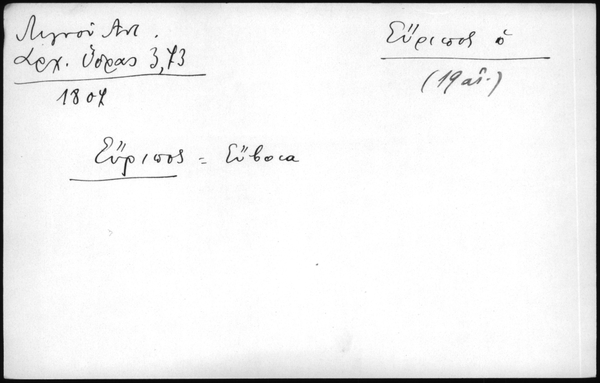 Λιγνού Αντ.
Αρχ. Ύδρας 3,73
1807
Εὔριπος ὁ
(19 αἰ.)
Εὔριπος = Εὔβοια